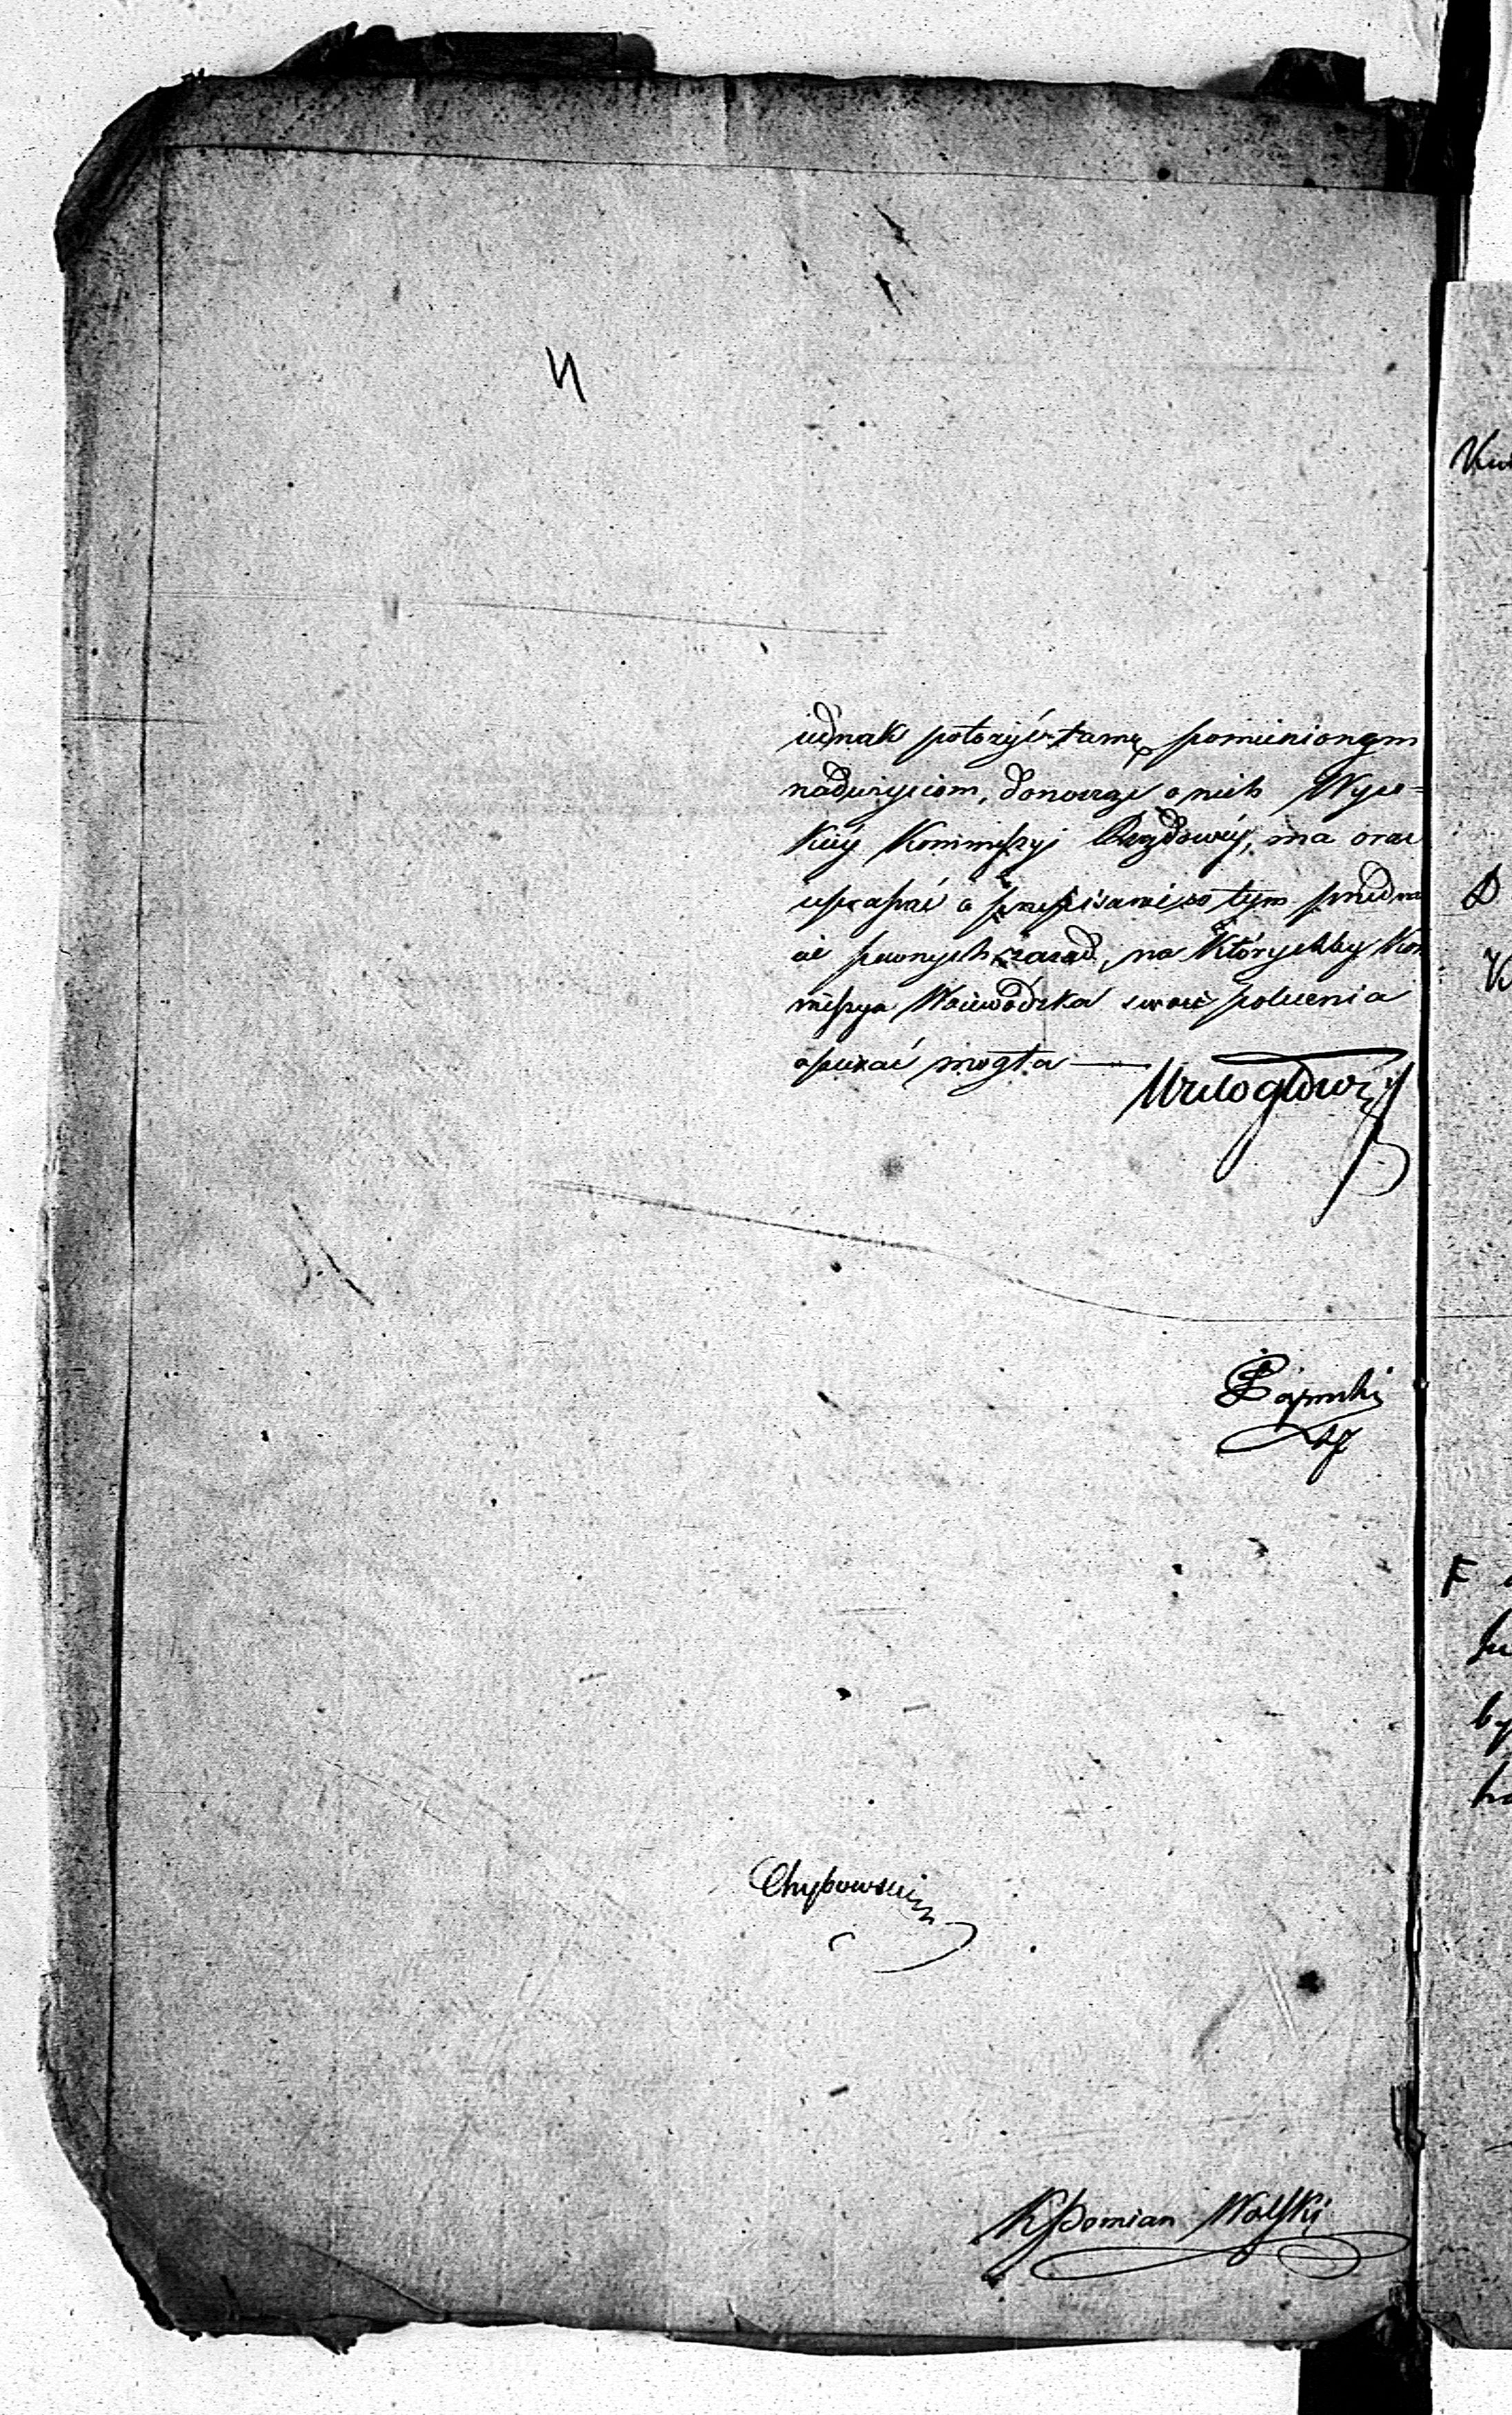 iednak położyć tamę pomienionym
nadużyciom, donosząc o nich Wyso=
kiéy Kommissyi Rządowéy, ma oraz
upraszać o przepisanie w tym przedmio
cie pewnych zasad, na którychby Kom
missya Woiewódzka swoie polecenia
opierać mogła —
Wielogłowski
Chybowski
Kssdomian Wolski